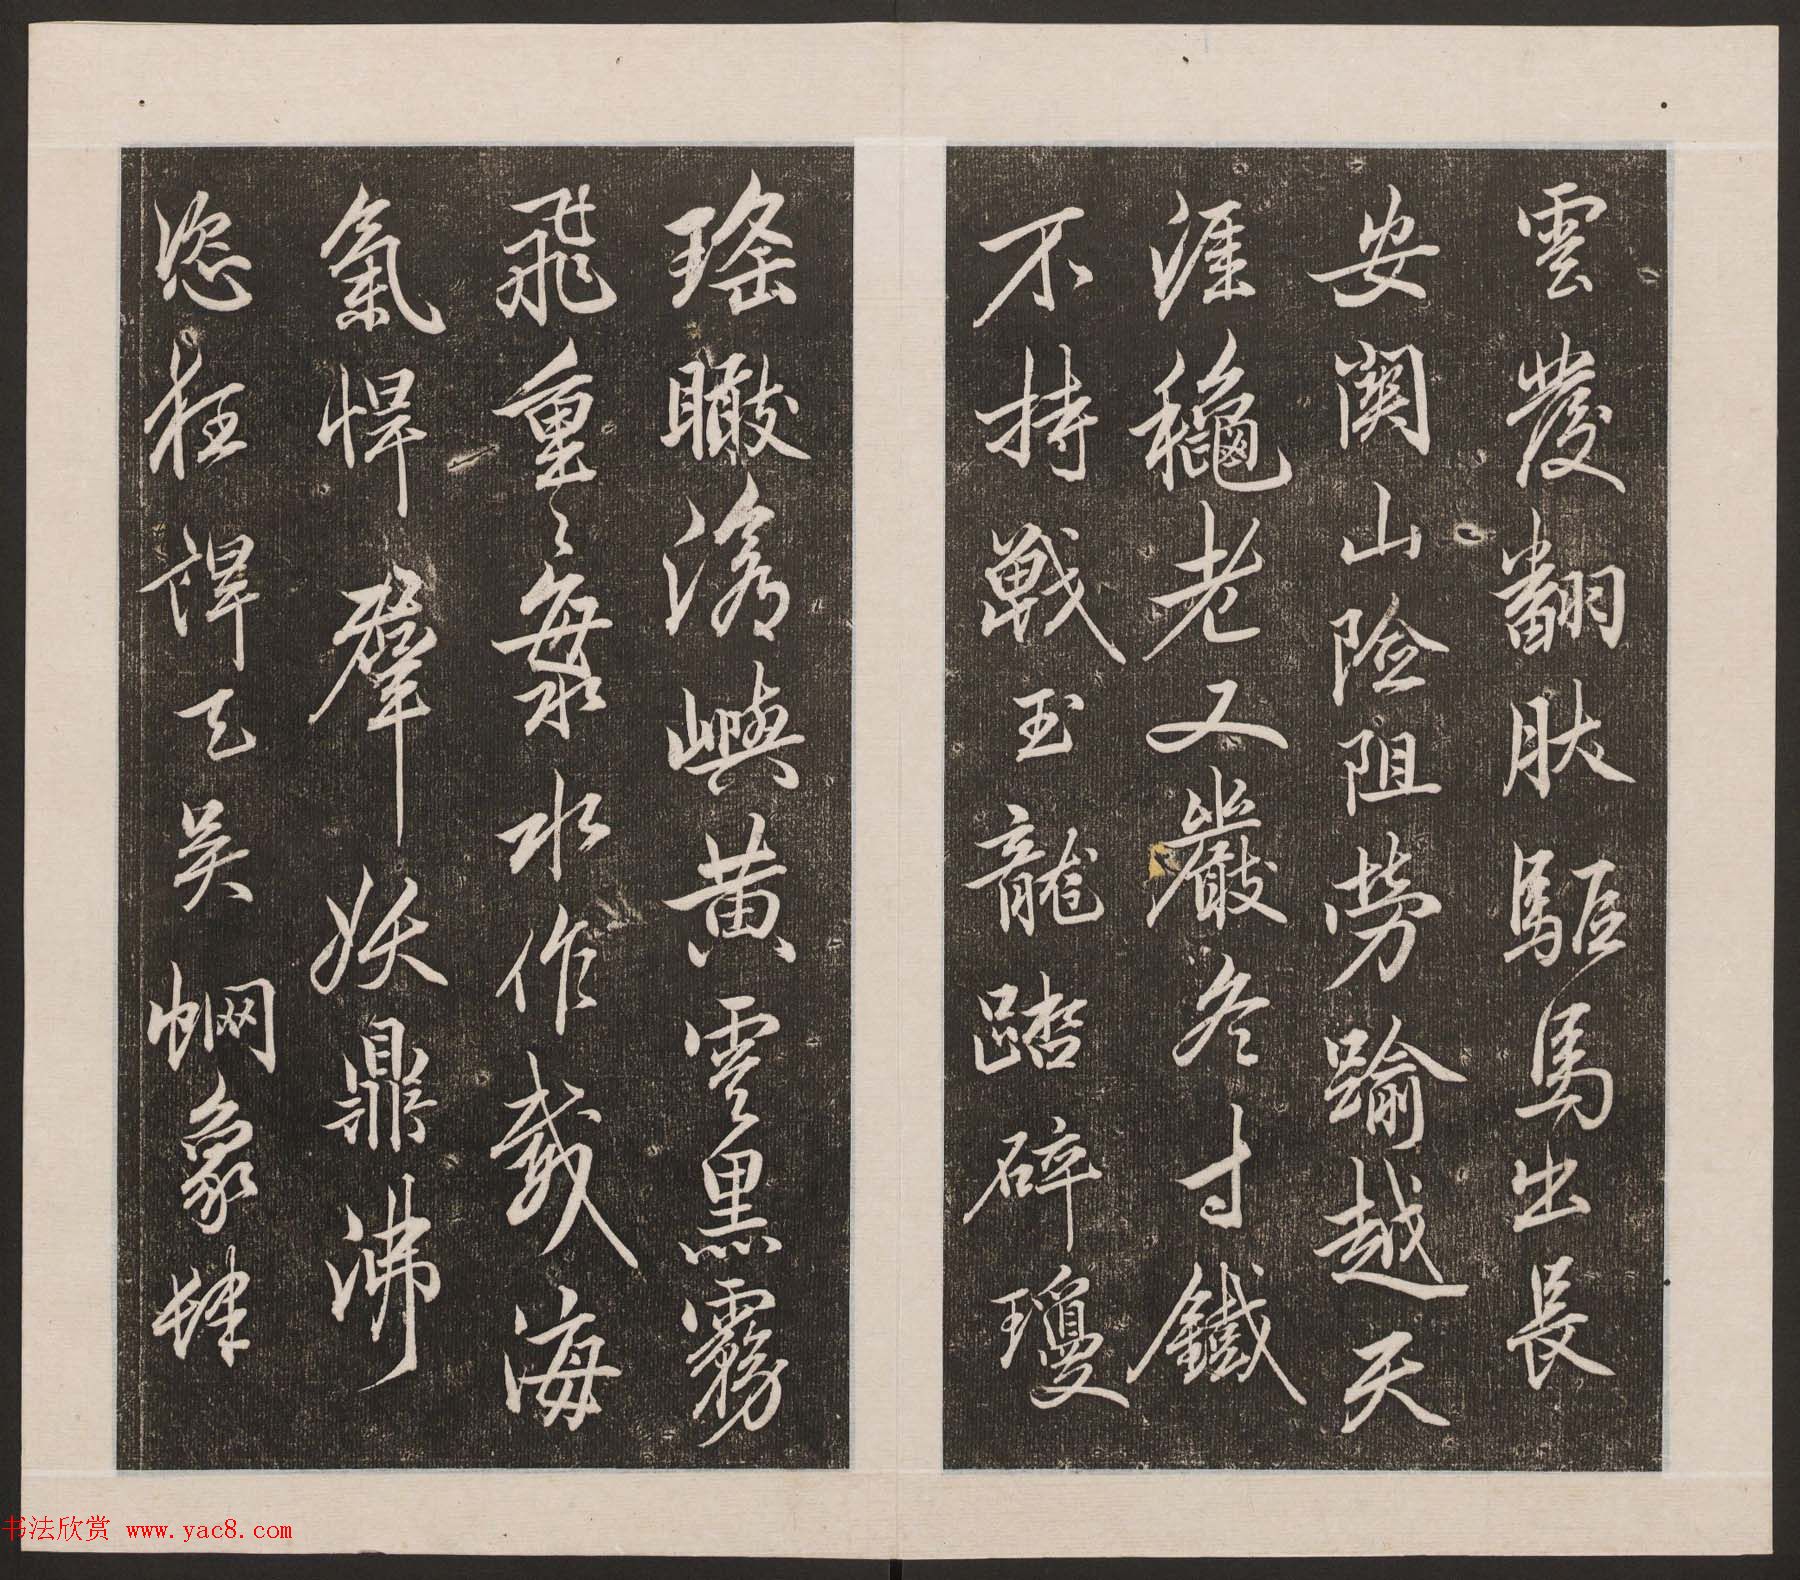 雲發翻肤驅馬出長
安關山險阻勞踰越天
涯龝老又嚴冬寸鐵
不持戰玉龍踏碎瓊
瑤瞰滄嶼黃雲黑霧
飛重〻水作海
氣悍羣妖鼎沸
恣狂天吴蝄象肆
书法欣赏 www.yac8.com